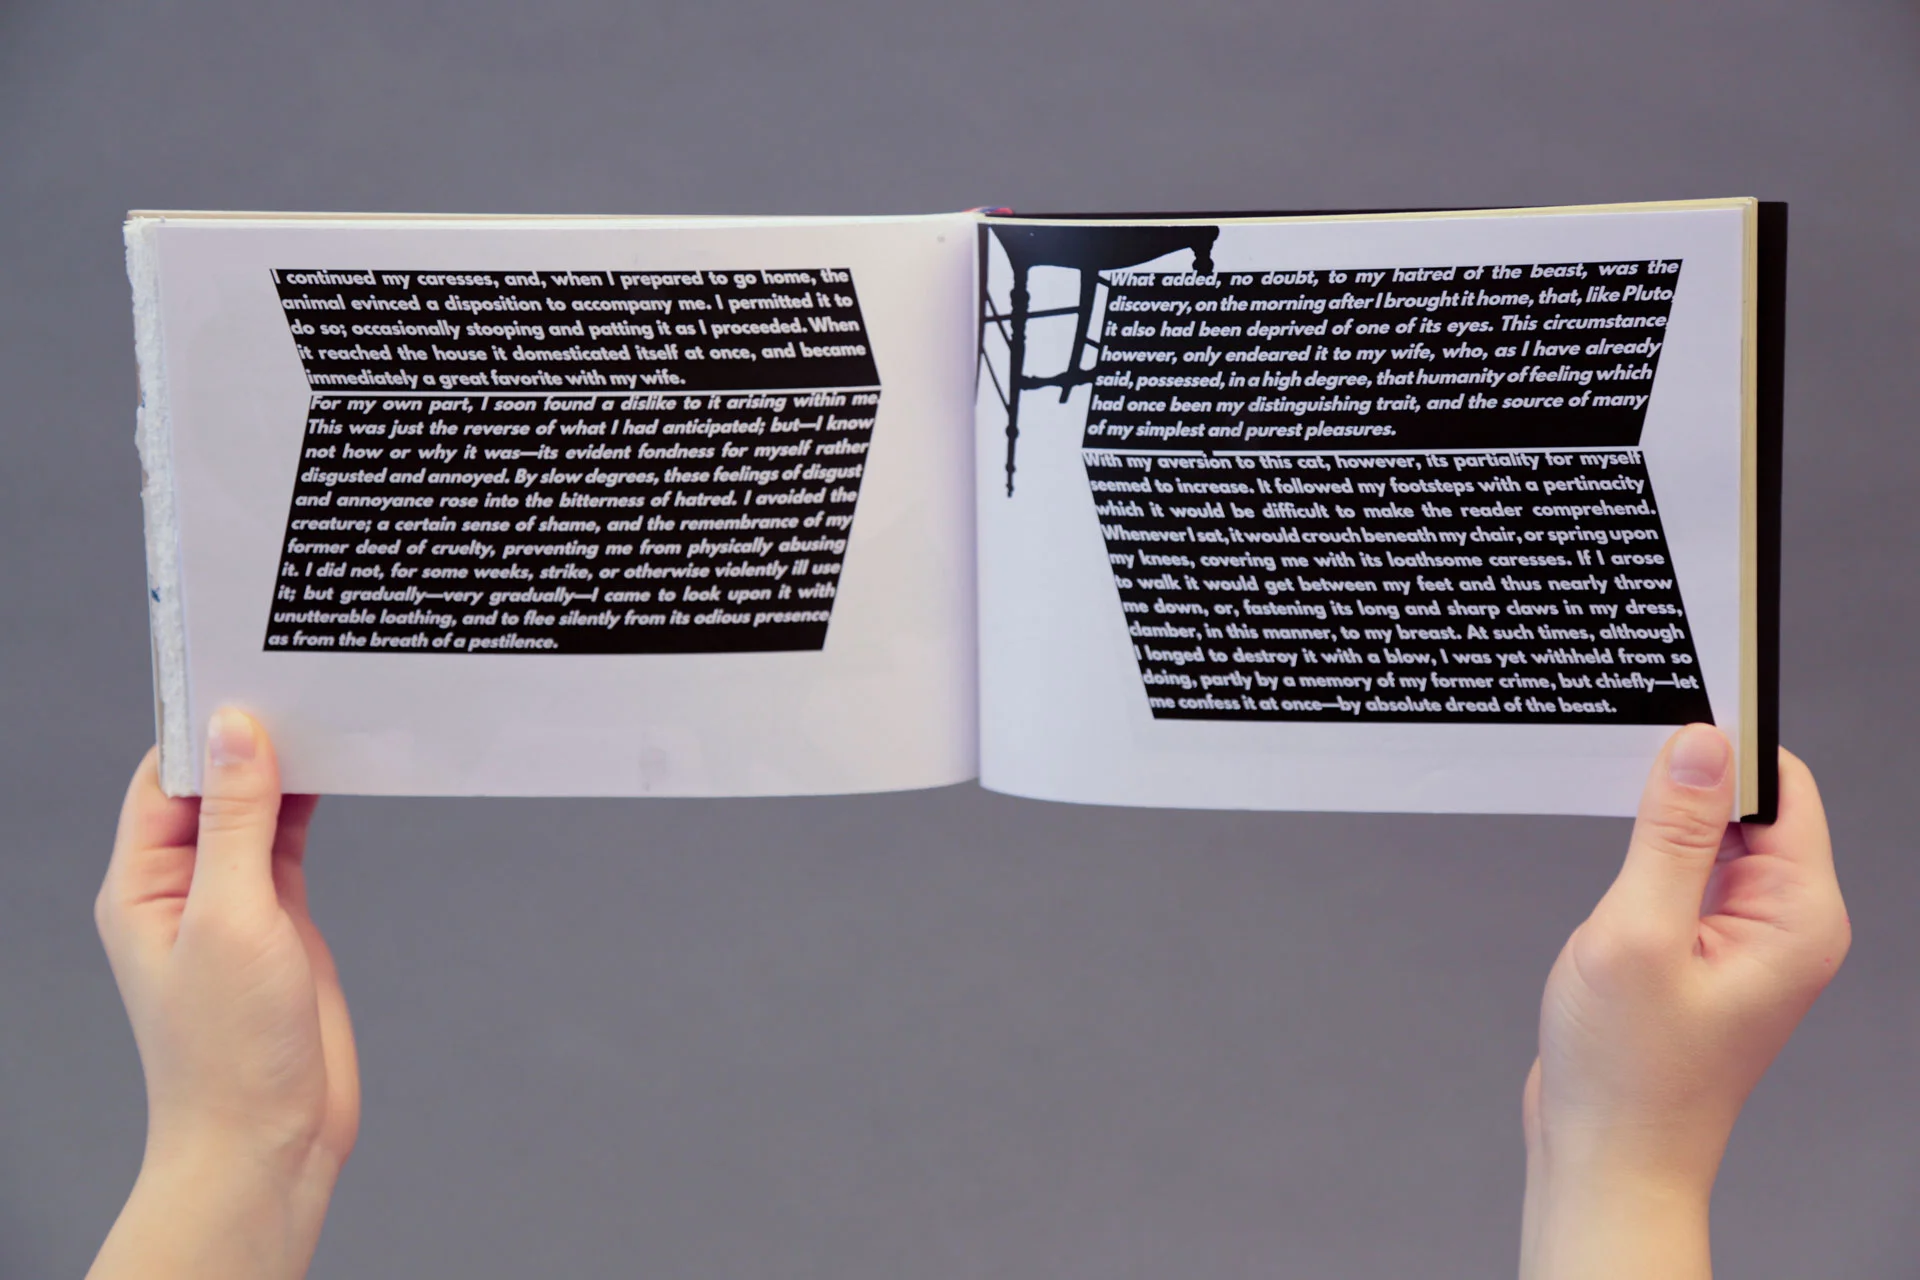 I continued my caresses, and, when I prepared to go home, the
animal evinced a disposition to accompany me. I permitted it to
do so; occasionally stooping and patting it as I proceeded. When
it reached the house it domesticated itself at once, and became
immediately a great favorite with my wife.
For my own part, I soon found a dislike to it arising within me.
This was just the reverse of what I had anticipated; but—I know
not how or why it was—its evident fondness for myself rather
disgusted and annoyed. By slow degrees, these feelings of disgust
and annoyance rose into the bitterness of hatred. I avoided the
creature; a certain sense of shame, and the remembrance of my
former deed of cruelty, preventing me from physically abusing
it. I did not, for some weeks, strike, or otherwise violently ill use
it; but gradually—very gradually—I came to look upon it with
unutterable loathing, and to flee silently from its odious presence,
as from the breath of a pestilence.
What added, no doubt, to my hatred of the beast, was the
discovery, on the morning after I brought it home, that, like Pluto,
it also had been deprived of one of its eyes. This circumstance,
however, only endeared it to my wife, who, as I have already
said, possessed, in a high degree, that humanity of feeling which
had once been my distinguishing trait, and the source of many
of my simplest and purest pleasures.
With my aversion to this cat, however, its partiality for myself
seemed to increase. It followed my footsteps with a pertinacity
which it would be difficult to make the reader comprehend.
Whenever I sat, it would crouch beneath my chair, or spring upon
my knees, covering me with its loathsome caresses. If I arose
to walk it would get between my feet and thus nearly throw
me down, or, fastening its long and sharp claws in my dress,
clamber, in this manner, to my breast. At such times, although
I longed to destroy it with a blow, I was yet withheld from so
doing, partly by a memory of my former crime, but chiefly—let
me confess it at once—by absolute dread of the beast.